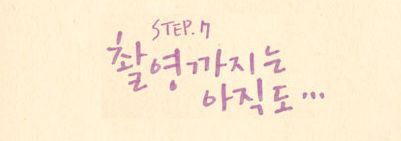 STEP.7
촬영까지는
아직도…